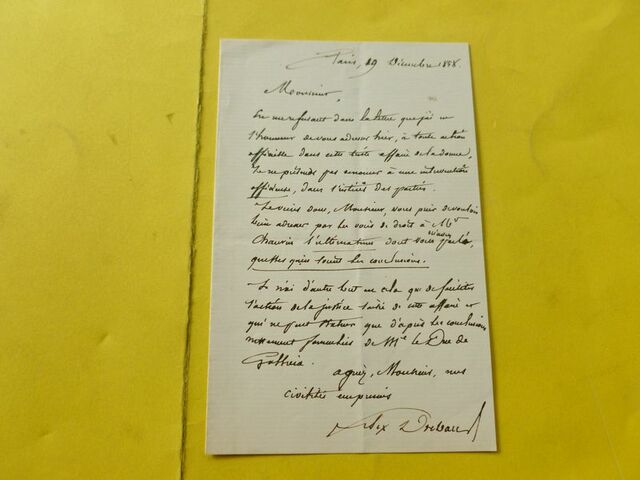 Paris, 19 Décembre 1888.
Monsieur,
En me refusant dans la lettre que j'ai eu
l'honneur de vous adresser hier, à toute action
officielle dans cette triste affaire de
Je ne prétends pas renoncer à une intervention
officieuse, dans l'intérêt des parties.
Je viens donc, Monsieur, vous prier de vouloir
bien adresser par les voies de droit à Mr
Chauvin l'alternative dont vous parlé,
quelles que soient les conclusions.
Je n'ai d'autre but en cela que de faciliter
l'action de la justice de cette affaire et
qui ne peut que d'après les conclusions
nettement formulées de Mr le Duc de
agréez, Monsieur, nos
civilités
Félix